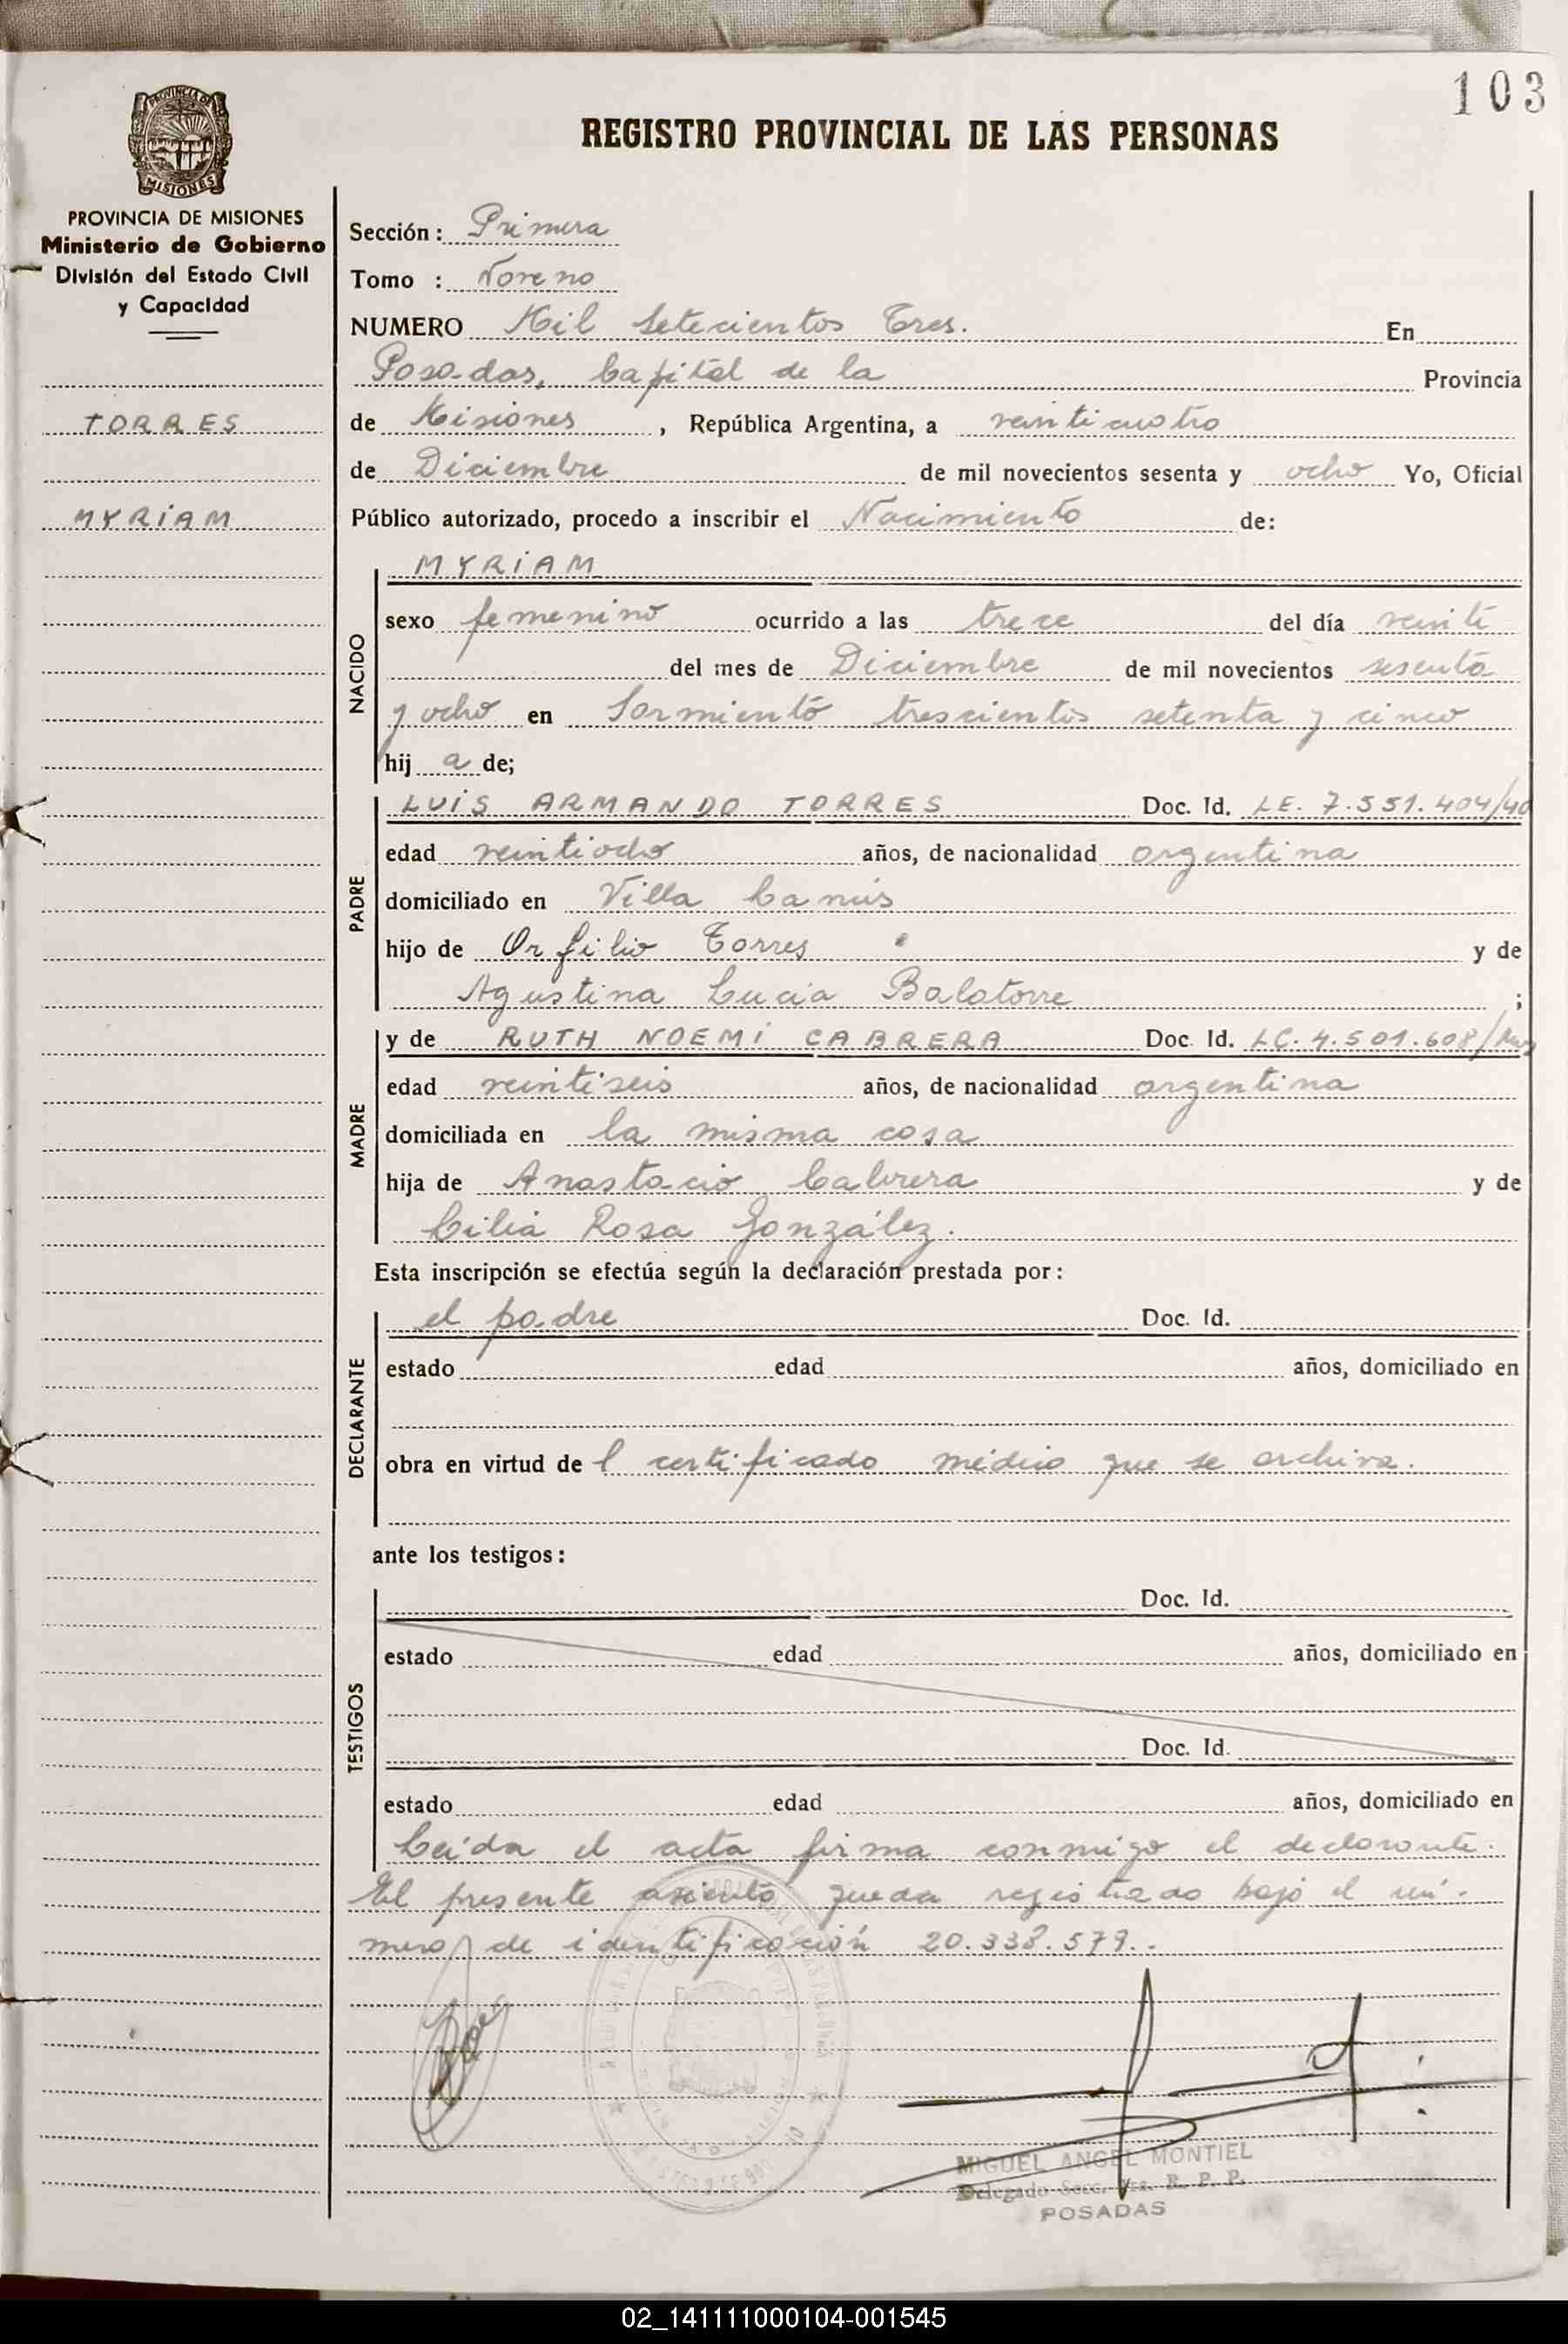 103
REGISTRO PROVINCIAL DE LAS PERSONAS
PROVINCIA DE
MISIONES
PROVINCIA DE MISIONES
Ministerio de Gobierno
División del Estado Civil
y Capacidad
TORRES
MYRIAM
Sección: Primera
Tomo : Noveno
NUMERO Mil Setecientos Tres. En
Posadas, Capital de la Provincia
de Misiones, República Argentina, a veinticuatro
de Diciembre de mil novecientos sesenta y ocho Yo, Oficial
Público autorizado, procedo a inscribir el Nacimiento de:
NACIDO
MYRIAM
sexo femenino ocurrido a las trece del día veinte
del mes de Diciembre de mil novecientos sesenta
y ocho en Sarmiento trescientos setenta y cinco
hij a de;
PADRE
LUIS ARMANDO TORRES Doc. Id. LE. 7.551.404/40
edad veintiocho años, de nacionalidad argentina
domiciliado en Villa
hijo de Orfilio Torres y de
Agustina Lucia Balatorre ;
MADRE
y de RUTH NOEMI CABRERA Doc. Id. LC. 4.501.608/
edad veintiseis años, de nacionalidad argentina
domiciliada en la misma casa
hija de Anastacio Cabrera y de
Cilia Rosa González.
Esta inscripción se efectúa según la declaración prestada por:
DECLARANTE
el padre Doc. Id.
estado edad años, domiciliado en
obra en virtud de l certificado médico que se archiva.
ante los testigos:
TESTIGOS
Doc. Id.
estado edad años, domiciliado en
Doc. Id.
estado edad años, domiciliado en
Leída el acta firma conmigo el declarante.
El presente asiento queda registrado bajo el nú-
mero de identificación 20.338.579..
MIGUEL ANGEL MONTIEL
Delegado Secc. 1ra. R. P. P.
POSADAS
02_141111000104-001545